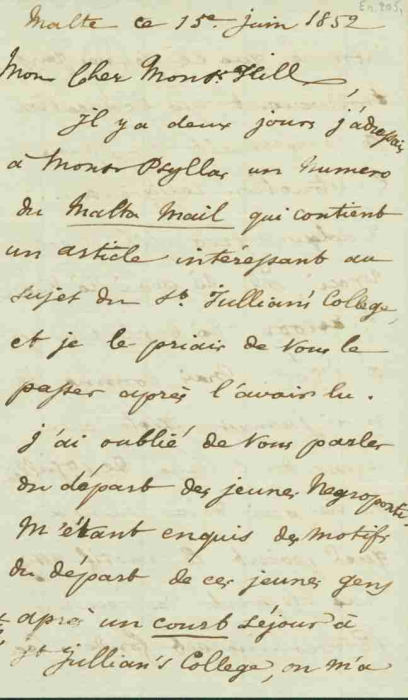 En. 205,
Malte ce 15e juin 1852
Mon Cher Monsr. Hill,
Il y a deux jours j'adressais
à Monsr Psyllas un Numero
du Malta Mail qui contient
un article intéressant au
sujet du St. Jullian's College,
et je le priais de Vous le
passer après l'avoir lu.
J'ai oublié de Vous parler
du départ des jeunes Negroponte
M'étant enquis des motifs
du départ de ces jeunes gens
après un court séjour à
St Jullian's College, on m'a